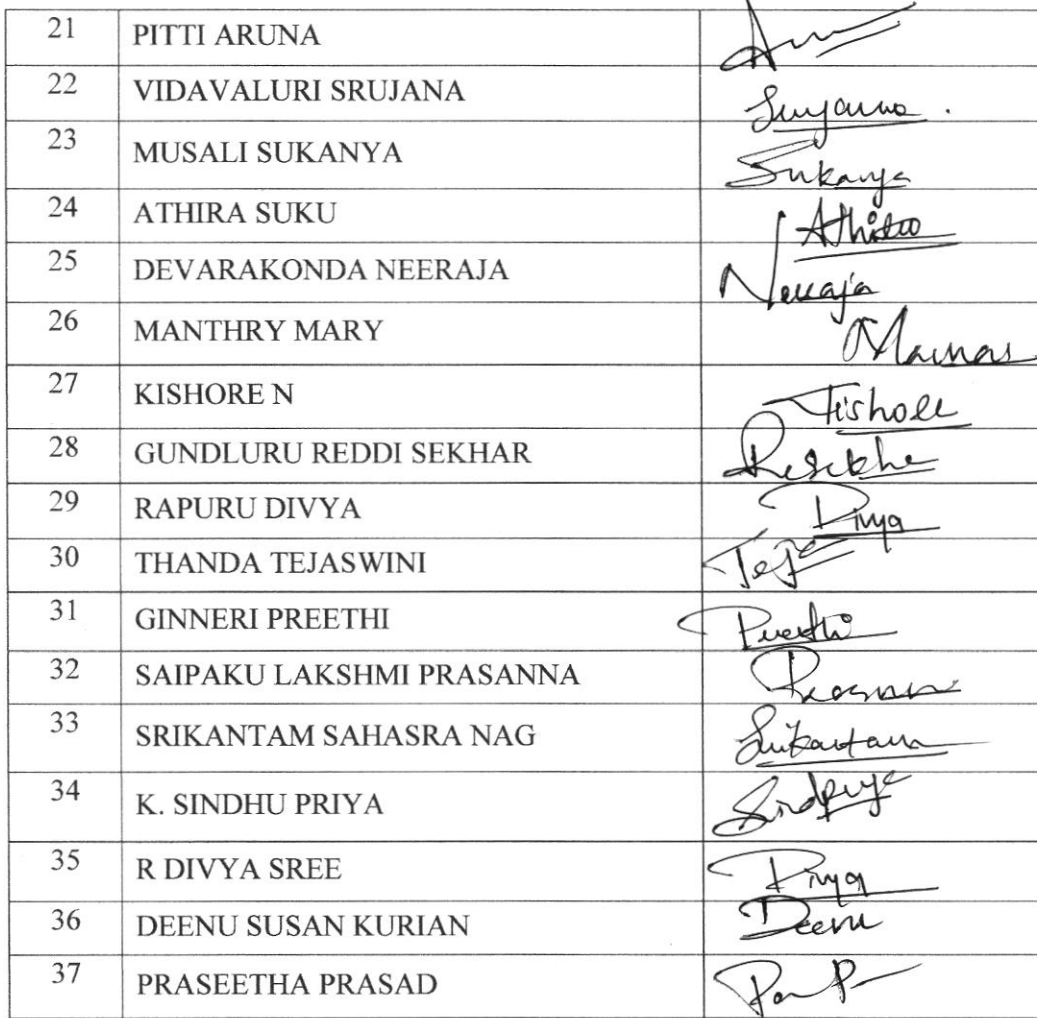 21 PITTI ARUNA
22 VIDAVALURI SRUJANA Srujana.
23 MUSALI SUKANYA Sukanya
24 ATHIRA SUKU Athira
25 DEVARAKONDA NEERAJA Neeraja
26 MANTHRY MARY
27 KISHORE N Kishore
28 GUNDLURU REDDI SEKHAR
29 RAPURU DIVYA Divya
30 THANDA TEJASWINI Tej
31 GINNERI PREETHI Preethi
32 SAIPAKU LAKSHMI PRASANNA
33 SRIKANTAM SAHASRA NAG Srikantam
34 K. SINDHU PRIYA
35 R DIVYA SREE Divya
36 DEENU SUSAN KURIAN Deenu
37 PRASEETHA PRASAD